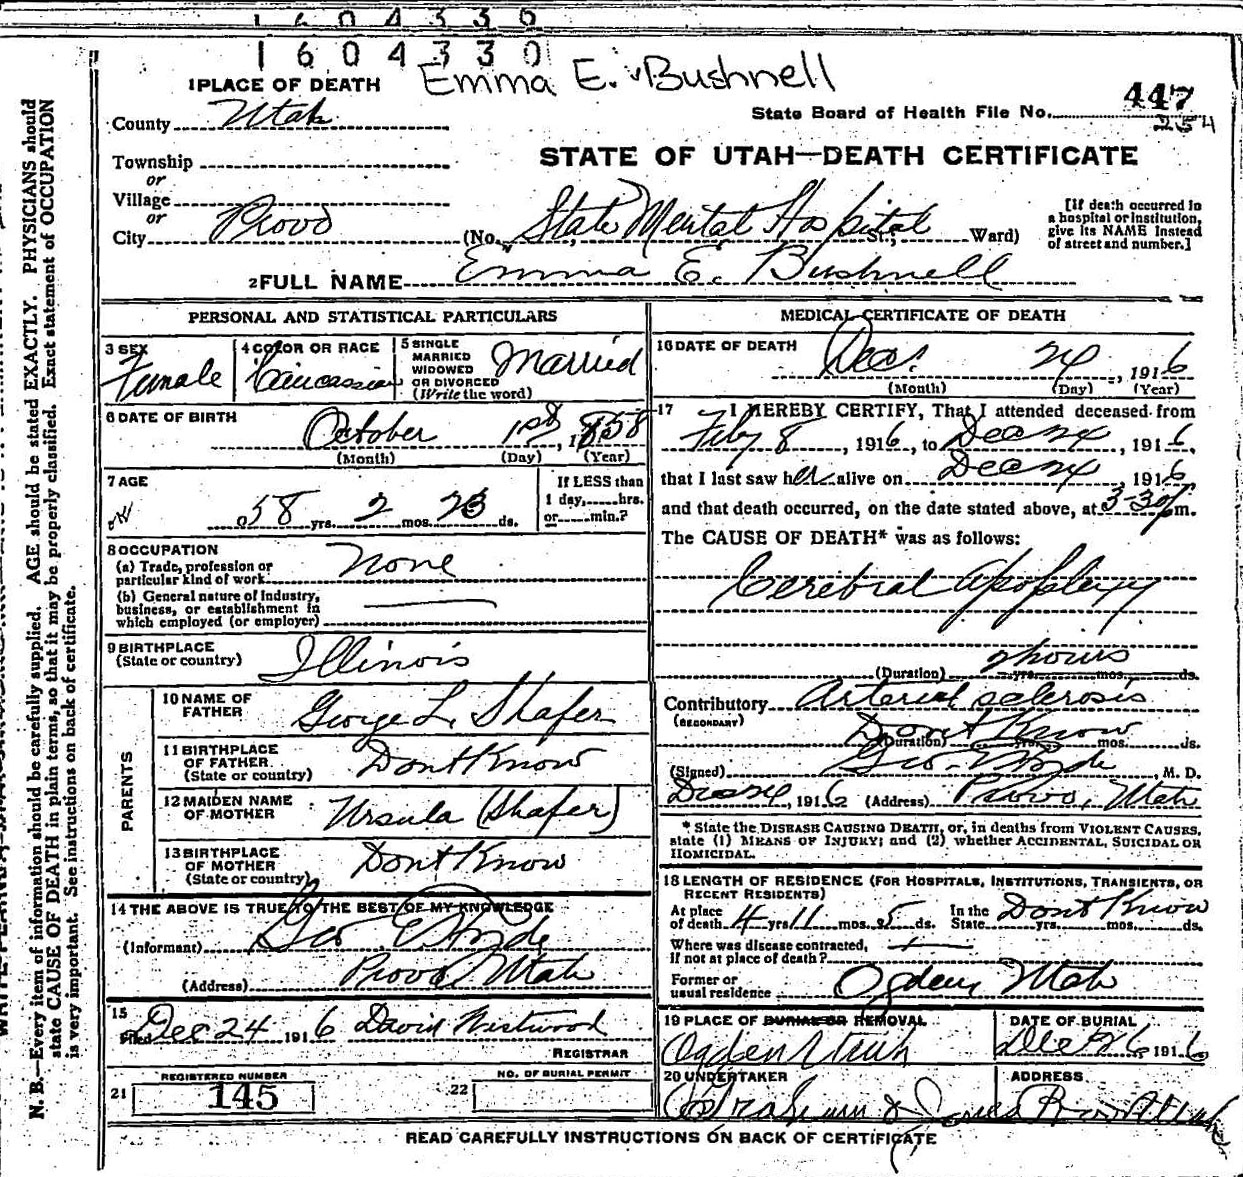 1604330
1604330
Emma E. Bushnell
1 PLACE OF DEATH
County Utah
State Board of Health File No. 447
254
Township
or
Village
or
City Provo
STATE OF UTAH—DEATH CERTIFICATE
(No. State Mental Hospital St.; Ward)
[If death occurred in
a hospital or institution,
give its NAME instead
of street and number.]
2 FULL NAME Emma E. Bushnell
PERSONAL AND STATISTICAL PARTICULARS
3 SEX
Female
4 COLOR OR RACE
Caucassian
5 SINGLE
MARRIED
WIDOWED
OR DIVORCED
(Write the word)
Married
6 DATE OF BIRTH
October 1st, 1858
(Month) (Day) (Year)
7 AGE
58 yrs. 2 mos. 23 ds.
If LESS than
1 day, hrs.
or min.?
8 OCCUPATION
(a) Trade, profession or
particular kind of work None
(b) General nature of industry,
business, or establishment in
which employed (or employer)
9 BIRTHPLACE
(State or country) Illinois
PARENTS
10 NAME OF
FATHER George L. Shafer
11 BIRTHPLACE
OF FATHER
(State or country) Dont Know
12 MAIDEN NAME
OF MOTHER Ursula (Shafer)
13 BIRTHPLACE
OF MOTHER
(State or country) Dont Know
14 THE ABOVE IS TRUE TO THE BEST OF MY KNOWLEDGE
(Informant) Geo. E. Hyde
(Address) Provo Utah
15
Filed Dec 24 1916 David Westwood
REGISTRAR
21 REGISTERED NUMBER
145
22 NO. OF BURIAL PERMIT
MEDICAL CERTIFICATE OF DEATH
16 DATE OF DEATH
Dec. 24, 1916
(Month) (Day) (Year)
17 I HEREBY CERTIFY, That I attended deceased from
Feby 8, 1916, to Dec 24, 1916,
that I last saw her alive on Dec 24, 1916
and that death occurred, on the date stated above, at 3-30 p m.
The CAUSE OF DEATH* was as follows:
Cerebral Apoplexy
(Duration) 2 hours yrs. mos. ds.
Contributory Arterial sclerosis
(SECONDARY)
Dont Know
(Duration) yrs. mos. ds.
(Signed) Geo. E. Hyde, M. D.
Dec 24, 1916 (Address) Provo, Utah
* State the DISEASE CAUSING DEATH, or, in deaths from VIOLENT CAUSES,
state (1) MEANS OF INJURY; and (2) whether ACCIDENTAL, SUICIDAL OR
HOMICIDAL.
18 LENGTH OF RESIDENCE (FOR HOSPITALS, INSTITUTIONS, TRANSIENTS, OR
RECENT RESIDENTS)
At place
of death 4 yrs 11 mos. 5 ds. In the
State Dont Know yrs. mos. ds.
Where was disease contracted,
if not at place of death?
Former or
usual residence Ogden, Utah
19 PLACE OF BURIAL OR REMOVAL
Ogden Utah
DATE OF BURIAL
Dec 26, 1916
20 UNDERTAKER
Graham & Jones
ADDRESS
Provo Utah
READ CAREFULLY INSTRUCTIONS ON BACK OF CERTIFICATE
N. B.—Every item of information should be carefully supplied. AGE should be stated EXACTLY. PHYSICIANS should
state CAUSE OF DEATH in plain terms, so that it may be properly classified. Exact statement of OCCUPATION
is very important. See instructions on back of certificate.